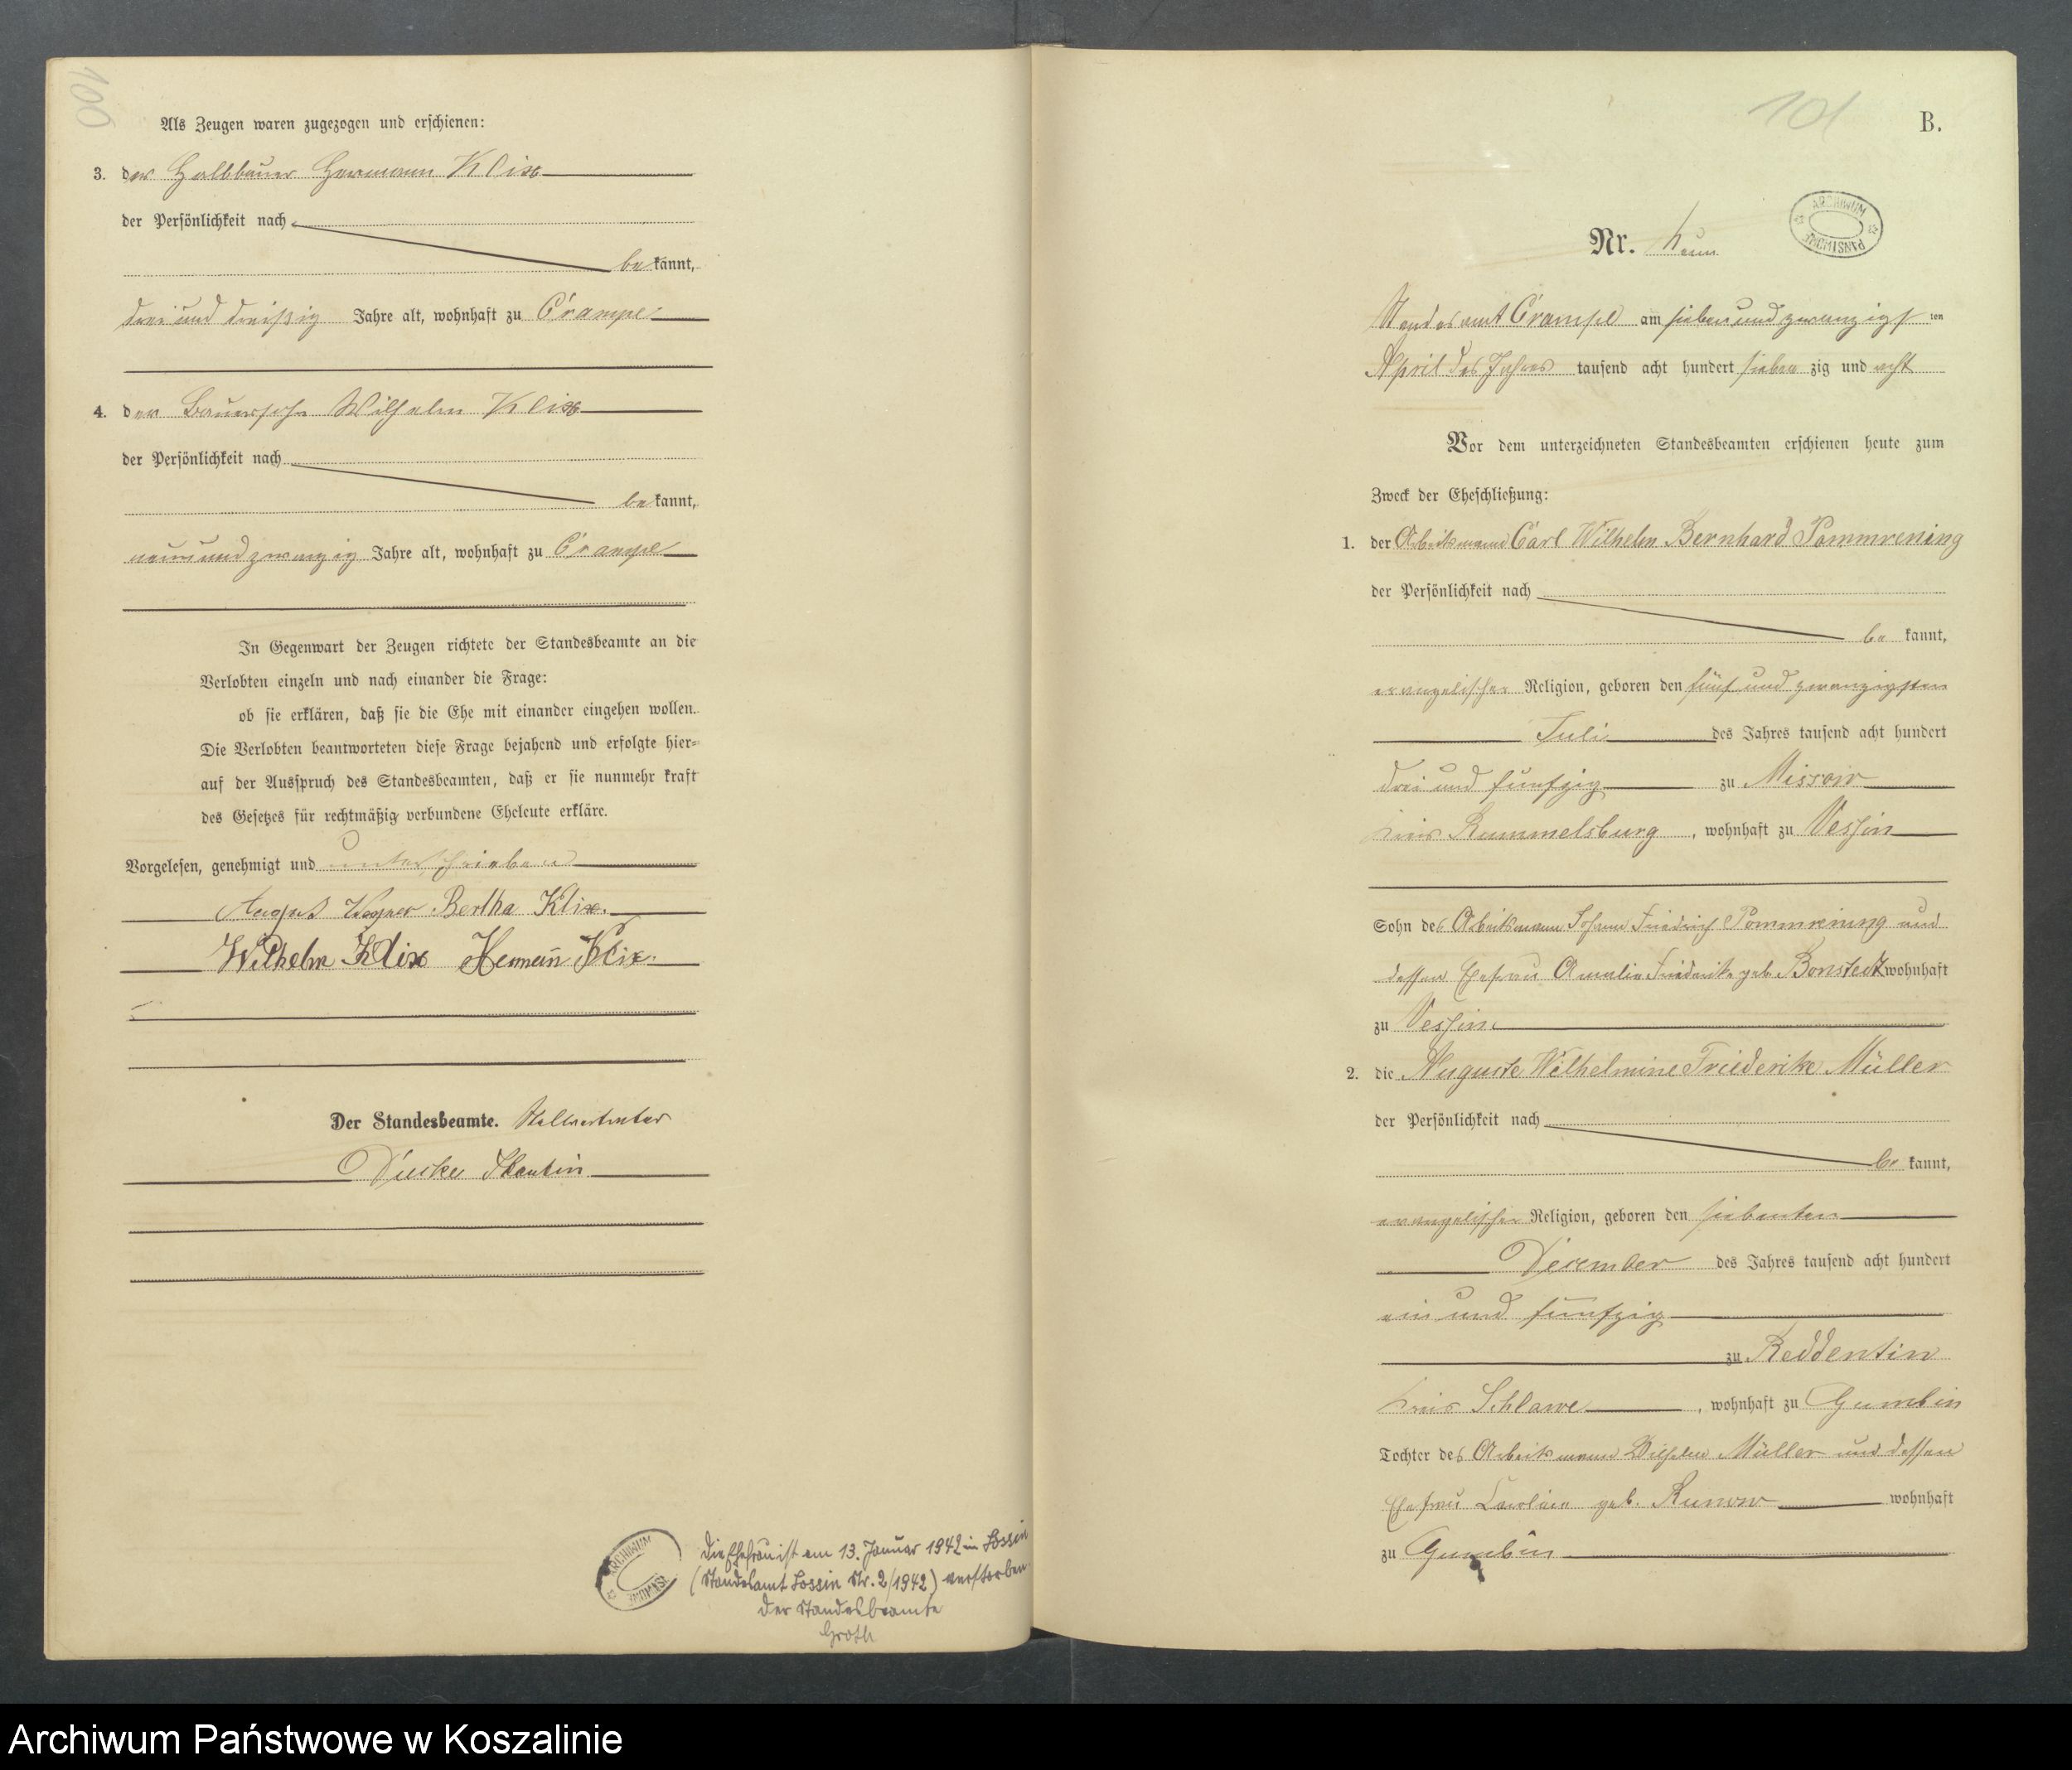 100
Als Zeugen waren zugezogen und erschienen:
3. der Halbbauer Hermann Klix
der Persönlichkeit nach
bekannt,
drei und dreißig Jahre alt, wohnhaft zu Crampe
4. der Bauersohn Wilhelm Klix
der Persönlichkeit nach
bekannt,
neunundzwanzig Jahre alt, wohnhaft zu Crampe
In Gegenwart der Zeugen richtete der Standesbeamte an die
Verlobten einzeln und nach einander die Frage:
ob sie erklären, daß sie die Ehe mit einander eingehen wollen.
Die Verlobten beantworteten diese Frage bejahend und erfolgte hier-
auf der Ausspruch des Standesbeamten, daß er sie nunmehr kraft
des Gesetzes für rechtmäßig verbundene Eheleute erkläre.
Vorgelesen, genehmigt und unterschrieben
August Bertha Klix.
Wilhelm Klix Hermann Klix.
Der Standesbeamte. Stellvertreter
ARCHIWUM
die Ehefrau ist am 13. Januar 1942 in Lossin
(Standesamt Lossin Nr. 2/1942) verstorben.
Der Standesbeamte
Groth
101
B.
ARCHIWUM PAŃSTWOWE
Nr. Neun
Standesamt Crampe am sieben und zwanzigsten
April des Jahres tausend acht hundert siebenzig und acht
Vor dem unterzeichneten Standesbeamten erschienen heute zum
Zweck der Eheschließung:
1. der Arbeitsmann Carl Wilhelm Bernhard Pommrening
der Persönlichkeit nach
bekannt,
evangelischer Religion, geboren den fünf und zwanzigsten
Juli des Jahres tausend acht hundert
drei und fünfzig zu Missow
Kreis Rummelsburg, wohnhaft zu Vessin
Sohn des Arbeitsmann Johann Friedrich Pommrening und
dessen Ehefrau Amalie Friederike geb. Bonstedt wohnhaft
zu Vessin
2. die Auguste Wilhelmine Friederike Müller
der Persönlichkeit nach
bekannt,
evangelischer Religion, geboren den siebenten
December des Jahres tausend acht hundert
ein und fünfzig
zu Reddentin
Kreis Schlawe, wohnhaft zu Gumbin
Tochter des Arbeitsmann Wilhelm Müller und dessen
Ehefrau Caroline geb. Runow wohnhaft
zu Gumbin
Archiwum Państwowe w Koszalinie